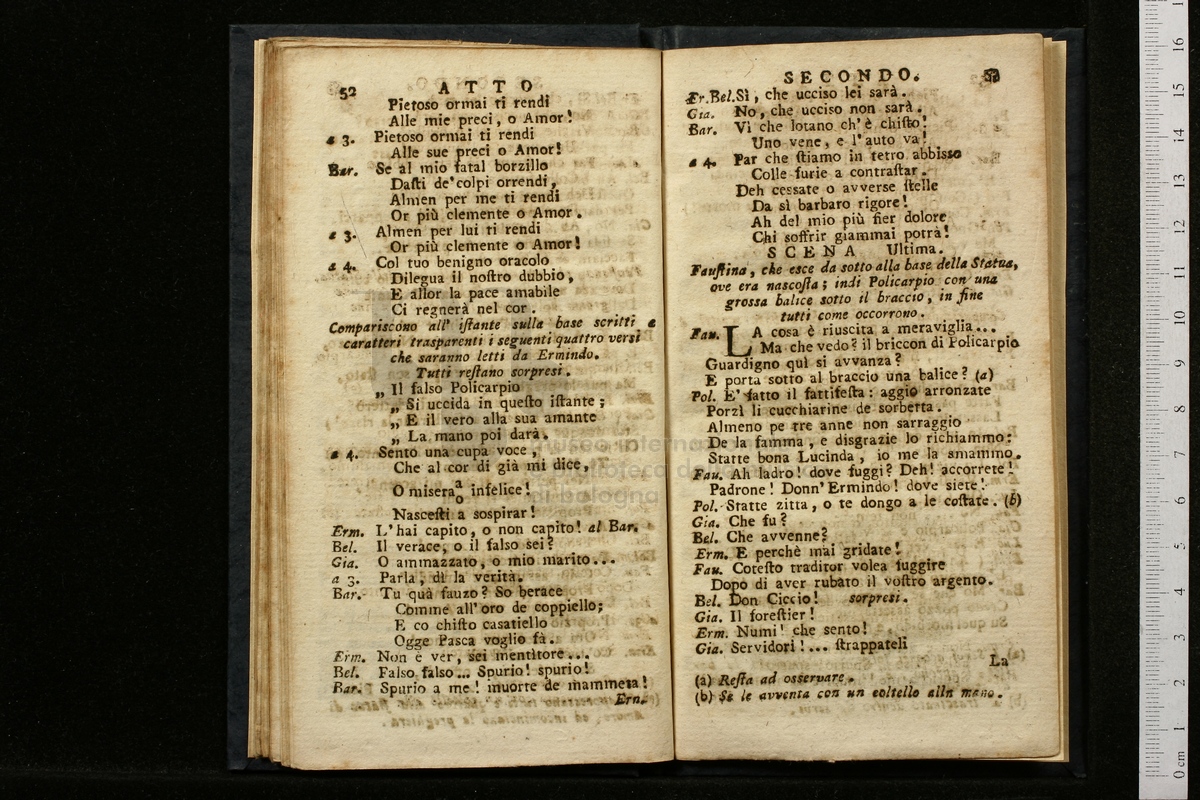 52 ATTO
Pietoso ormai ti rendi
Alle mie preci, o Amor!
a 3. Pietoso ormai ti rendi
Alle sue preci o Amor!
Bar. Se al mio fatal borzillo
Daſti de'colpi orrendi,
Almen per me ti rendi
Or più clemente o Amor.
a 3. Almen per lui ti rendi
Or più clemente o Amor!
a 4. Col tuo benigno oracolo
Dilegua il noſtro dubbio,
E allor la pace amabile
Ci regnerà nel cor.
Compariscono all' iſtante sulla base scritti a
caratteri trasparenti i seguenti quattro versi
che saranno letti da Ermindo.
Tutti reſtano sorpresi.
„ Il falso Policarpio
„ Si uccida in queſto iſtante;
„ E il vero alla sua amante
„ La mano poi darà.
a 4. Sento una cupa voce,
Che al cor di già mi dice,
O misera a/o infelice!
Nasceſti a sospirar!
Erm. L'hai capito, o non capito! al Bar.
Bel. Il verace, o il falso sei?
Gia. O ammazzato, o mio marito...
a 3. Parla, dì la verità.
Bar. Tu quà fauzo? So berace
Comme all'oro de coppiello;
E co chiſto casatiello
Ogge Pasca voglio fà.
Erm. Non è ver, sei mentitore...
Bel. Falso falso... Spurio! spurio!
Bar. Spurio a me! muorte de mammeta!
Ern.
SECONDO. 53
Er.Bel.Sì, che ucciso lei sarà.
Gia. No, che ucciso non sarà.
Bar. Vì che lotano ch'è chiſto!
Uno vene, e l'auto va!
a 4. Par che ſtiamo in tetro abbisso
Colle furie a contraſtar.
Deh cessate o avverse ſtelle
Da sì barbaro rigore!
Ah del mio più fier dolore
Chi soffrir giammai potrà!
SCENA Ultima.
Fauſtina, che esce da sotto alla base della Statua,
ove era nascoſta; indi Policarpio con una
grossa balice sotto il braccio, in fine
tutti come occorrono.
Fau. LA cosa è riuscita a meraviglia...
Ma che vedo? il briccon di Policarpio
Guardigno quì si avvanza?
E porta sotto al braccio una balice? (a)
Pol. E' fatto il fattifeſta: aggio arronzate
Porzì li cucchiarine de sorbetta.
Almeno pe tre anne non sarraggio
De la famma, e disgrazie lo richiammo:
Statte bona Lucinda, io me la smammo.
Fau. Ah ladro! dove fuggi? Deh! accorrete!
Padrone! Donn'Ermindo! dove siete!
Pol. Statte zitta, o te dongo a le coſtate. (b)
Gia. Che fu?
Bel. Che avvenne?
Erm. E perchè mai gridate!
Fau. Coteſto traditor volea fuggire
Dopo di aver rubato il voſtro argento.
Bel. Don Ciccio! sorpresi.
Gia. Il foreſtier!
Erm. Numi! che sento!
Gia. Servidori!... ſtrappateli
La
(a) Reſta ad osservare.
(b) Se le avventa con un coltello alla mano.